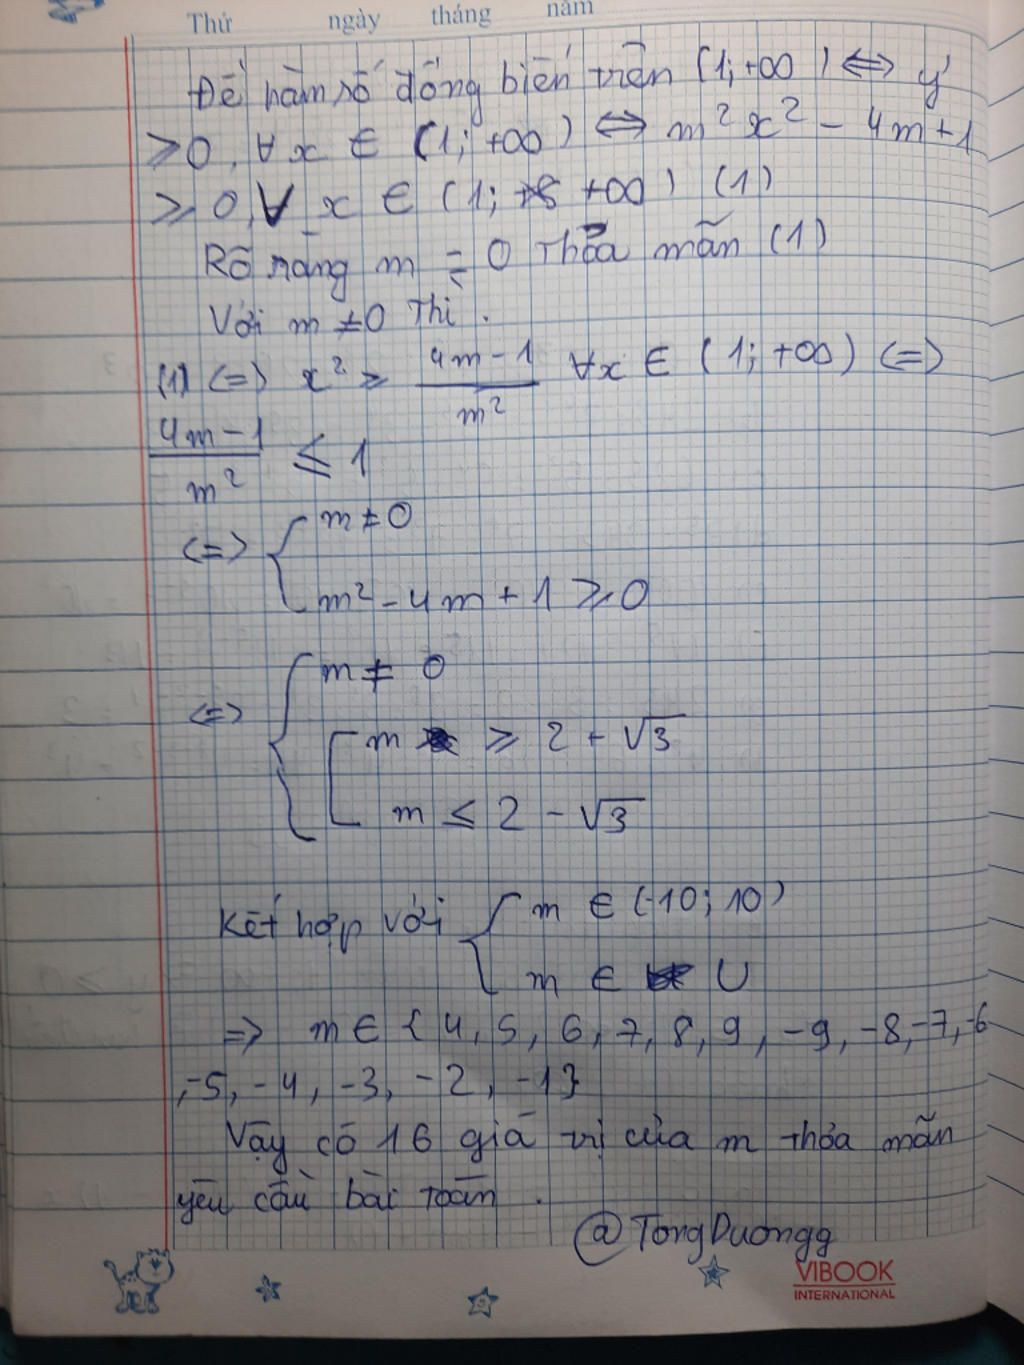 Thứ ngày tháng năm
Để hàm số đồng biến trên (1; +∞) ⇔ y'
≥ 0, ∀ x ∈ (1; +∞) ⇔ m² x² - 4m + 1
≥ 0, ∀ x ∈ (1; +∞) (1)
Rõ ràng m = 0 thỏa mãn (1)
Với m ≠ 0 thì.
(1) ⇔ x² ≥ (4m - 1)/m² ∀x ∈ (1; +∞) ⇔
(4m - 1)/m² ≤ 1
⇔ { m ≠ 0
m² - 4m + 1 ≥ 0
⇔ { m ≠ 0
[ m ≥ 2 + √3
m ≤ 2 - √3
Kết hợp với { m ∈ (-10; 10)
m ∈ U
=> m ∈ {4, 5, 6, 7, 8, 9, -9, -8, -7, -6
, -5, -4, -3, -2, -1}
Vậy có 16 giá trị của m thỏa mãn
yêu cầu bài toán.
@TongDuongg
VIBOOK
INTERNATIONAL